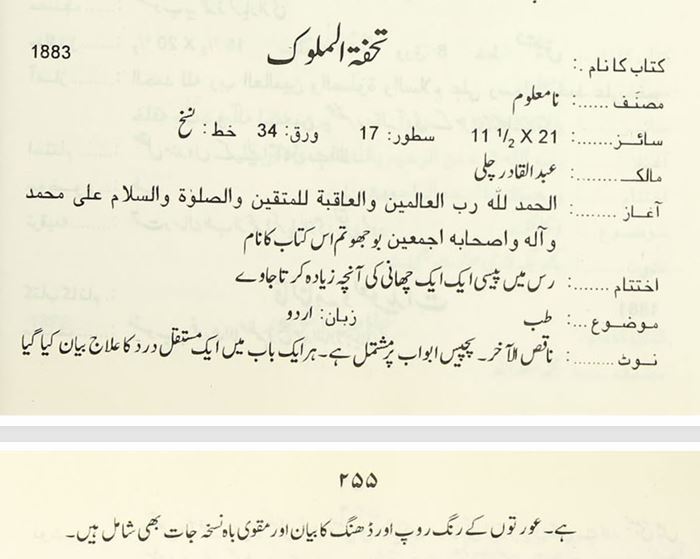 کتاب کا نام .: تحفۃ الملوک 1883
مصنف ......: نامعلوم
سائز.......: 11 1/2 X 21 سطور: 17 ورق: 34 خط: نسخ
مالک.......: عبدالقادر چلی
آغاز .......: الحمد للّٰہ رب العالمین والعاقبة للمتقین والصلوٰة والسلام علی محمد
وآلہ واصحابہ اجمعین بوجھو تم اس کتاب کا نام
اختتام ......: رس میں پیسی ایک ایک چھانی کی آنچہ زیادہ کرتا جاوے
موضوع ...: طب زبان: اردو
نوٹ .......: ناقص الآخر۔ پچیس ابواب پر مشتمل ہے۔ ہر ایک باب میں ایک مستقل درد کا علاج بیان کیا گیا
۲۵۵
ہے۔ عورتوں کے رنگ روپ اور ڈھنگ کا بیان اور مقوی باہ نسخہ جات بھی شامل ہیں۔